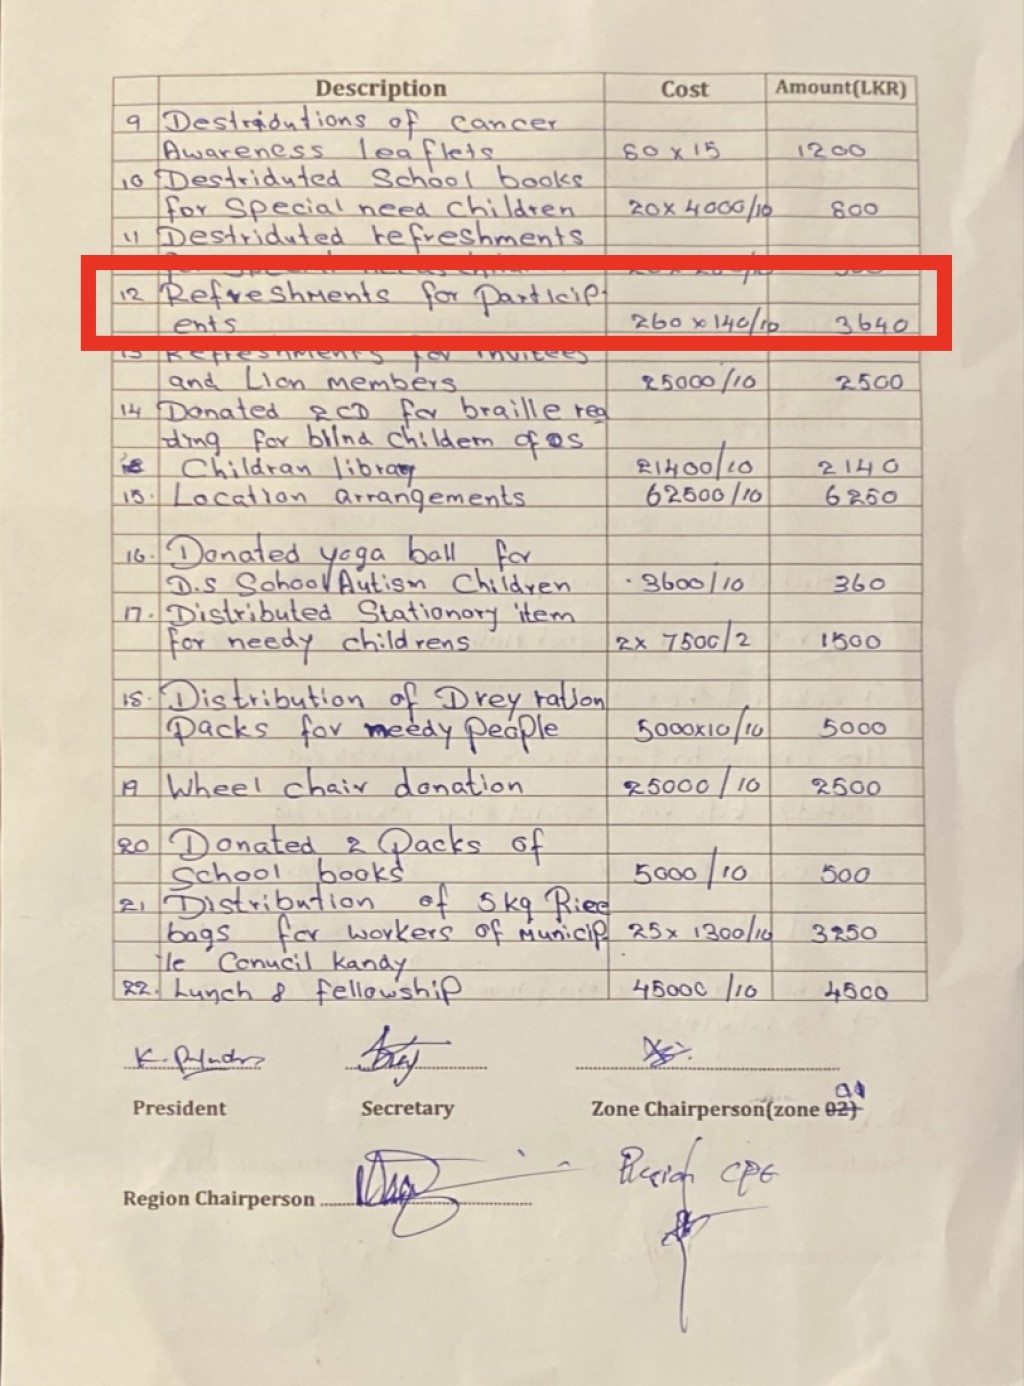 Description Cost Amount(LKR)
9 Destridutions of cancer
Awareness leaflets 80 x 15 1200
10 Destriduted School books
for Special need Children 20x 4000/10 800
11 Destriduted refreshments
12 Refreshments for Particip
ents 260 x 140/10 3640
13 Refreshments for invitees
and Lion members 25000/10 2500
14 Donated 2 CD for braille rea
ding for blind Childern of DS
Children library 21400/10 2140
15. Location arrangements 62500/10 6250
16. Donated yoga ball for
D.S School Autism Children 3600/10 360
17. Distributed Stationory item
for needy childrens 2x 7500/2 1500
18. Distribution of Drey ration
Packs for needy people 5000x10/10 5000
19 Wheel chair donation 25000/10 2500
20 Donated 2 Packs of
School books 5000/10 500
21. Distribution of 5kg Rice
bags for workers of Municip 25x 1300/10 3250
le Conucil Kandy
22. Lunch & fellowship 45000/10 4500
President Secretary Zone Chairperson(zone 02)
Region Chairperson